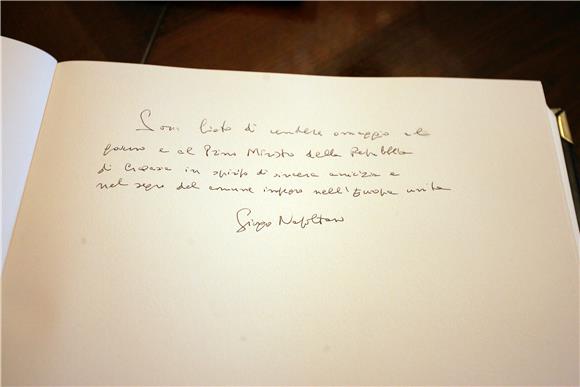 Sono lieto di rendere omaggio al
governo e al Primo Ministro della Repubblica
di Croazia in spirito di sincera amicizia e
nel segno del comune impegno nell'Europa unita
Giorgio Napolitano